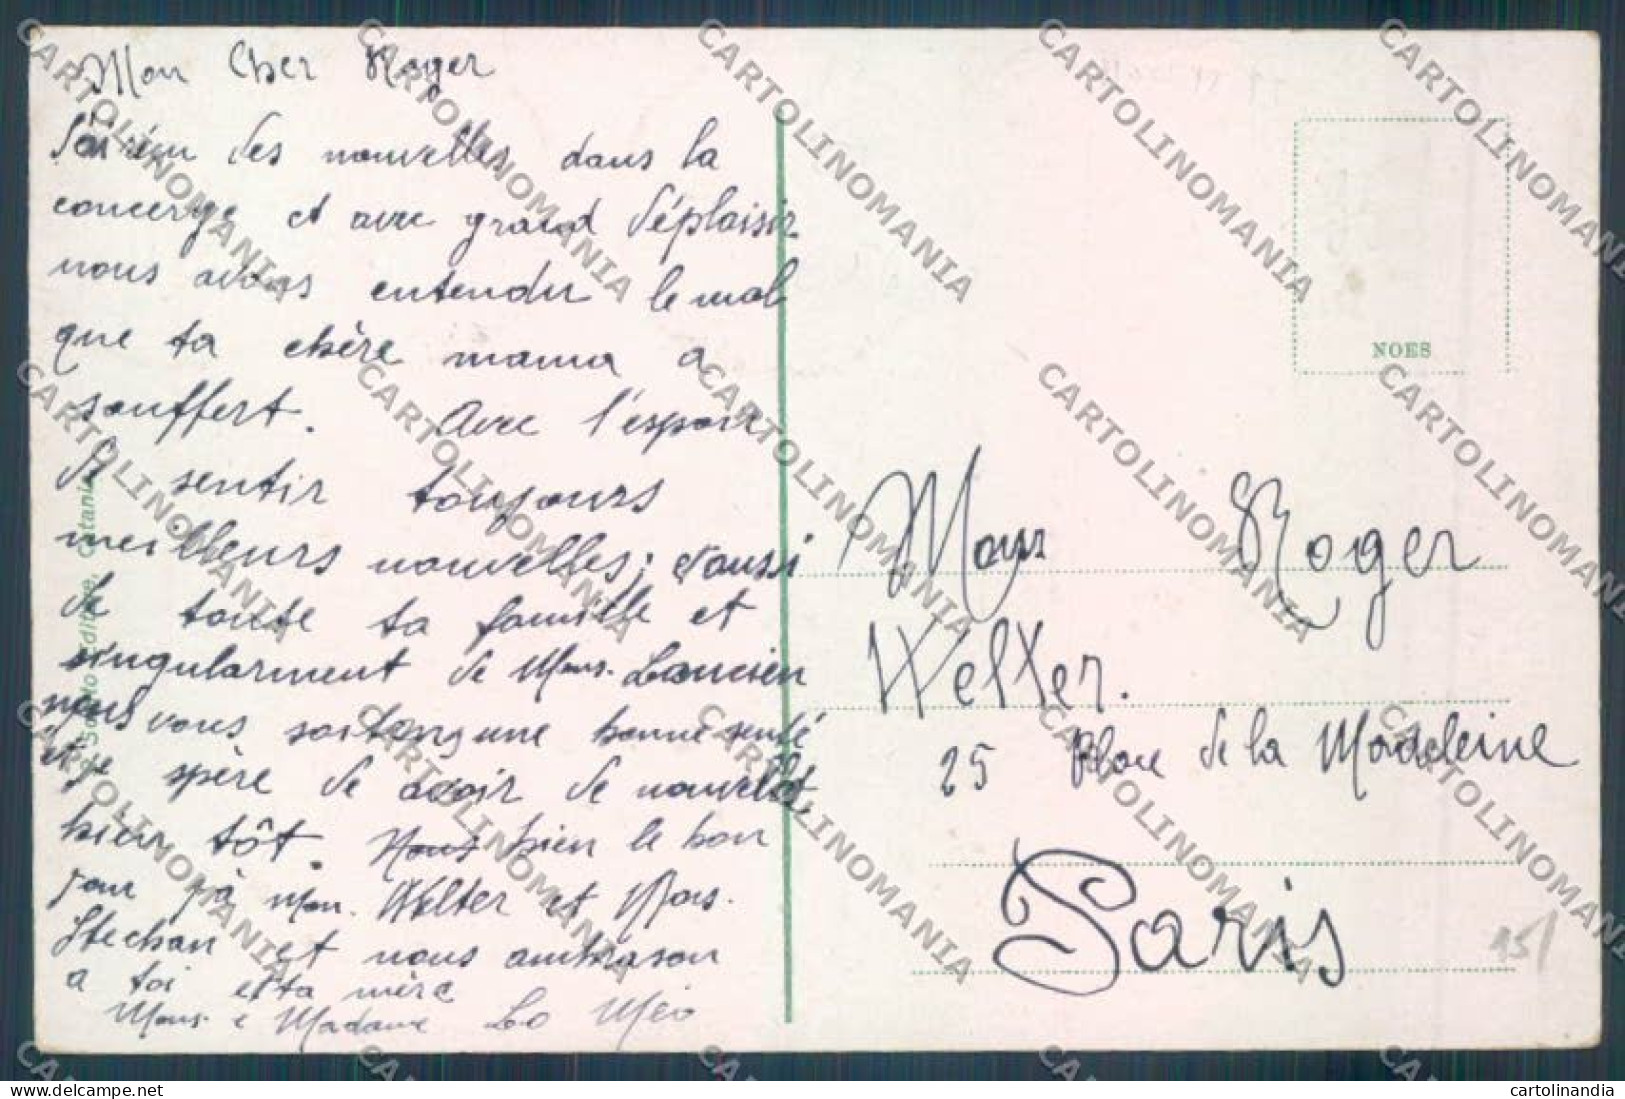 Mon Cher Roger
J'ai réçu des nouvelles dans la
concerge et avec grand déplaisir
nous avons entendu le mal
que ta chère mama a
souffert. Avec l'espoir
de sentir toujours
meilleurs nouvelles; d'aussi
de toute ta famille et
singularment de Mons. Loucien
nous vous soitons une bonne senté
et je spère de avoir de nouvelles
bien tôt. Nous bien le bon
jour à Mon. Welter et Mons.
Stechan et nous ambrason
a toi et ta mère
Mons. e Madame Lo Meo
Scotto Editore, Catania
NOES
Mons Roger
Welter.
25 Place de la Madeleine
Paris
15/
CARTOLINOMANIA
cartolinandia